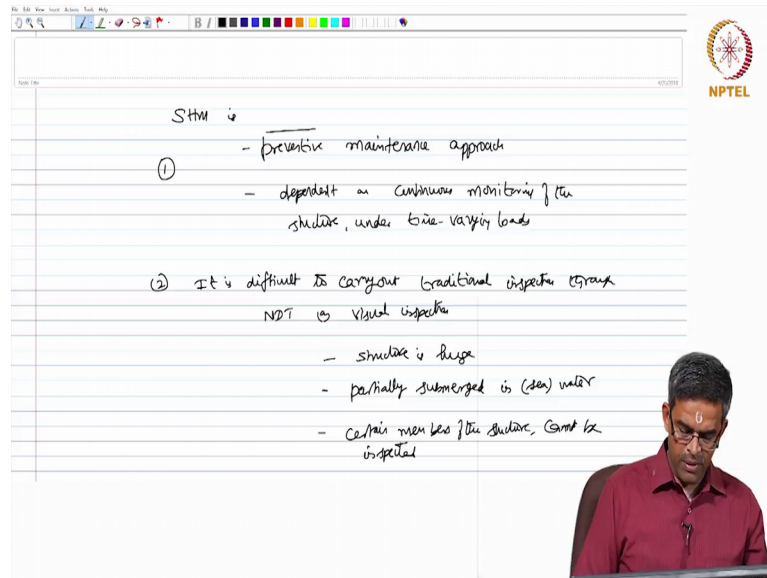 File Edit View Insert Actions Tools Help
B I
Note Title
4/25/2018
NPTEL
SHM is
- preventive maintenance approach
①
- dependent on continuous monitoring of the
structure, under time-varying loads
(2) It is difficult to carryout traditional inspection through
NDT or visual inspection
- structure is huge
- partially submerged in (sea) water
- certain members of the structure, cannot be
inspected